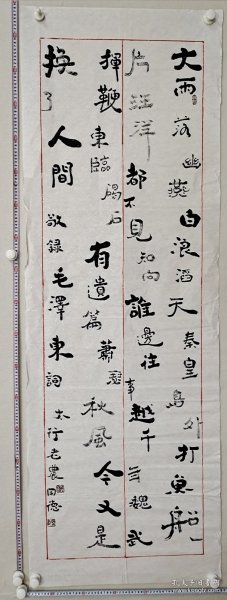 大雨落幽燕白浪滔天秦皇島外打魚船一
片汪洋都不見知向誰邊往事越千年魏武
揮鞭東臨碣石有遺篇蕭瑟秋風今又是
換了人間 敬錄毛澤東詞 太行老農
孔夫子旧书网